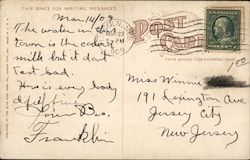 THIS SPACE FOR WRITING MESSAGES
POST CARD
THIS SPACE FOR ADDRESS ONLY
Mar. 14/09
The water in this
town is the color
milk but it dont
tast bad.
How is every body
Your Bro.
Franklin
Miss Winnie
191 Lexington Ave
Jersey City
New Jersey